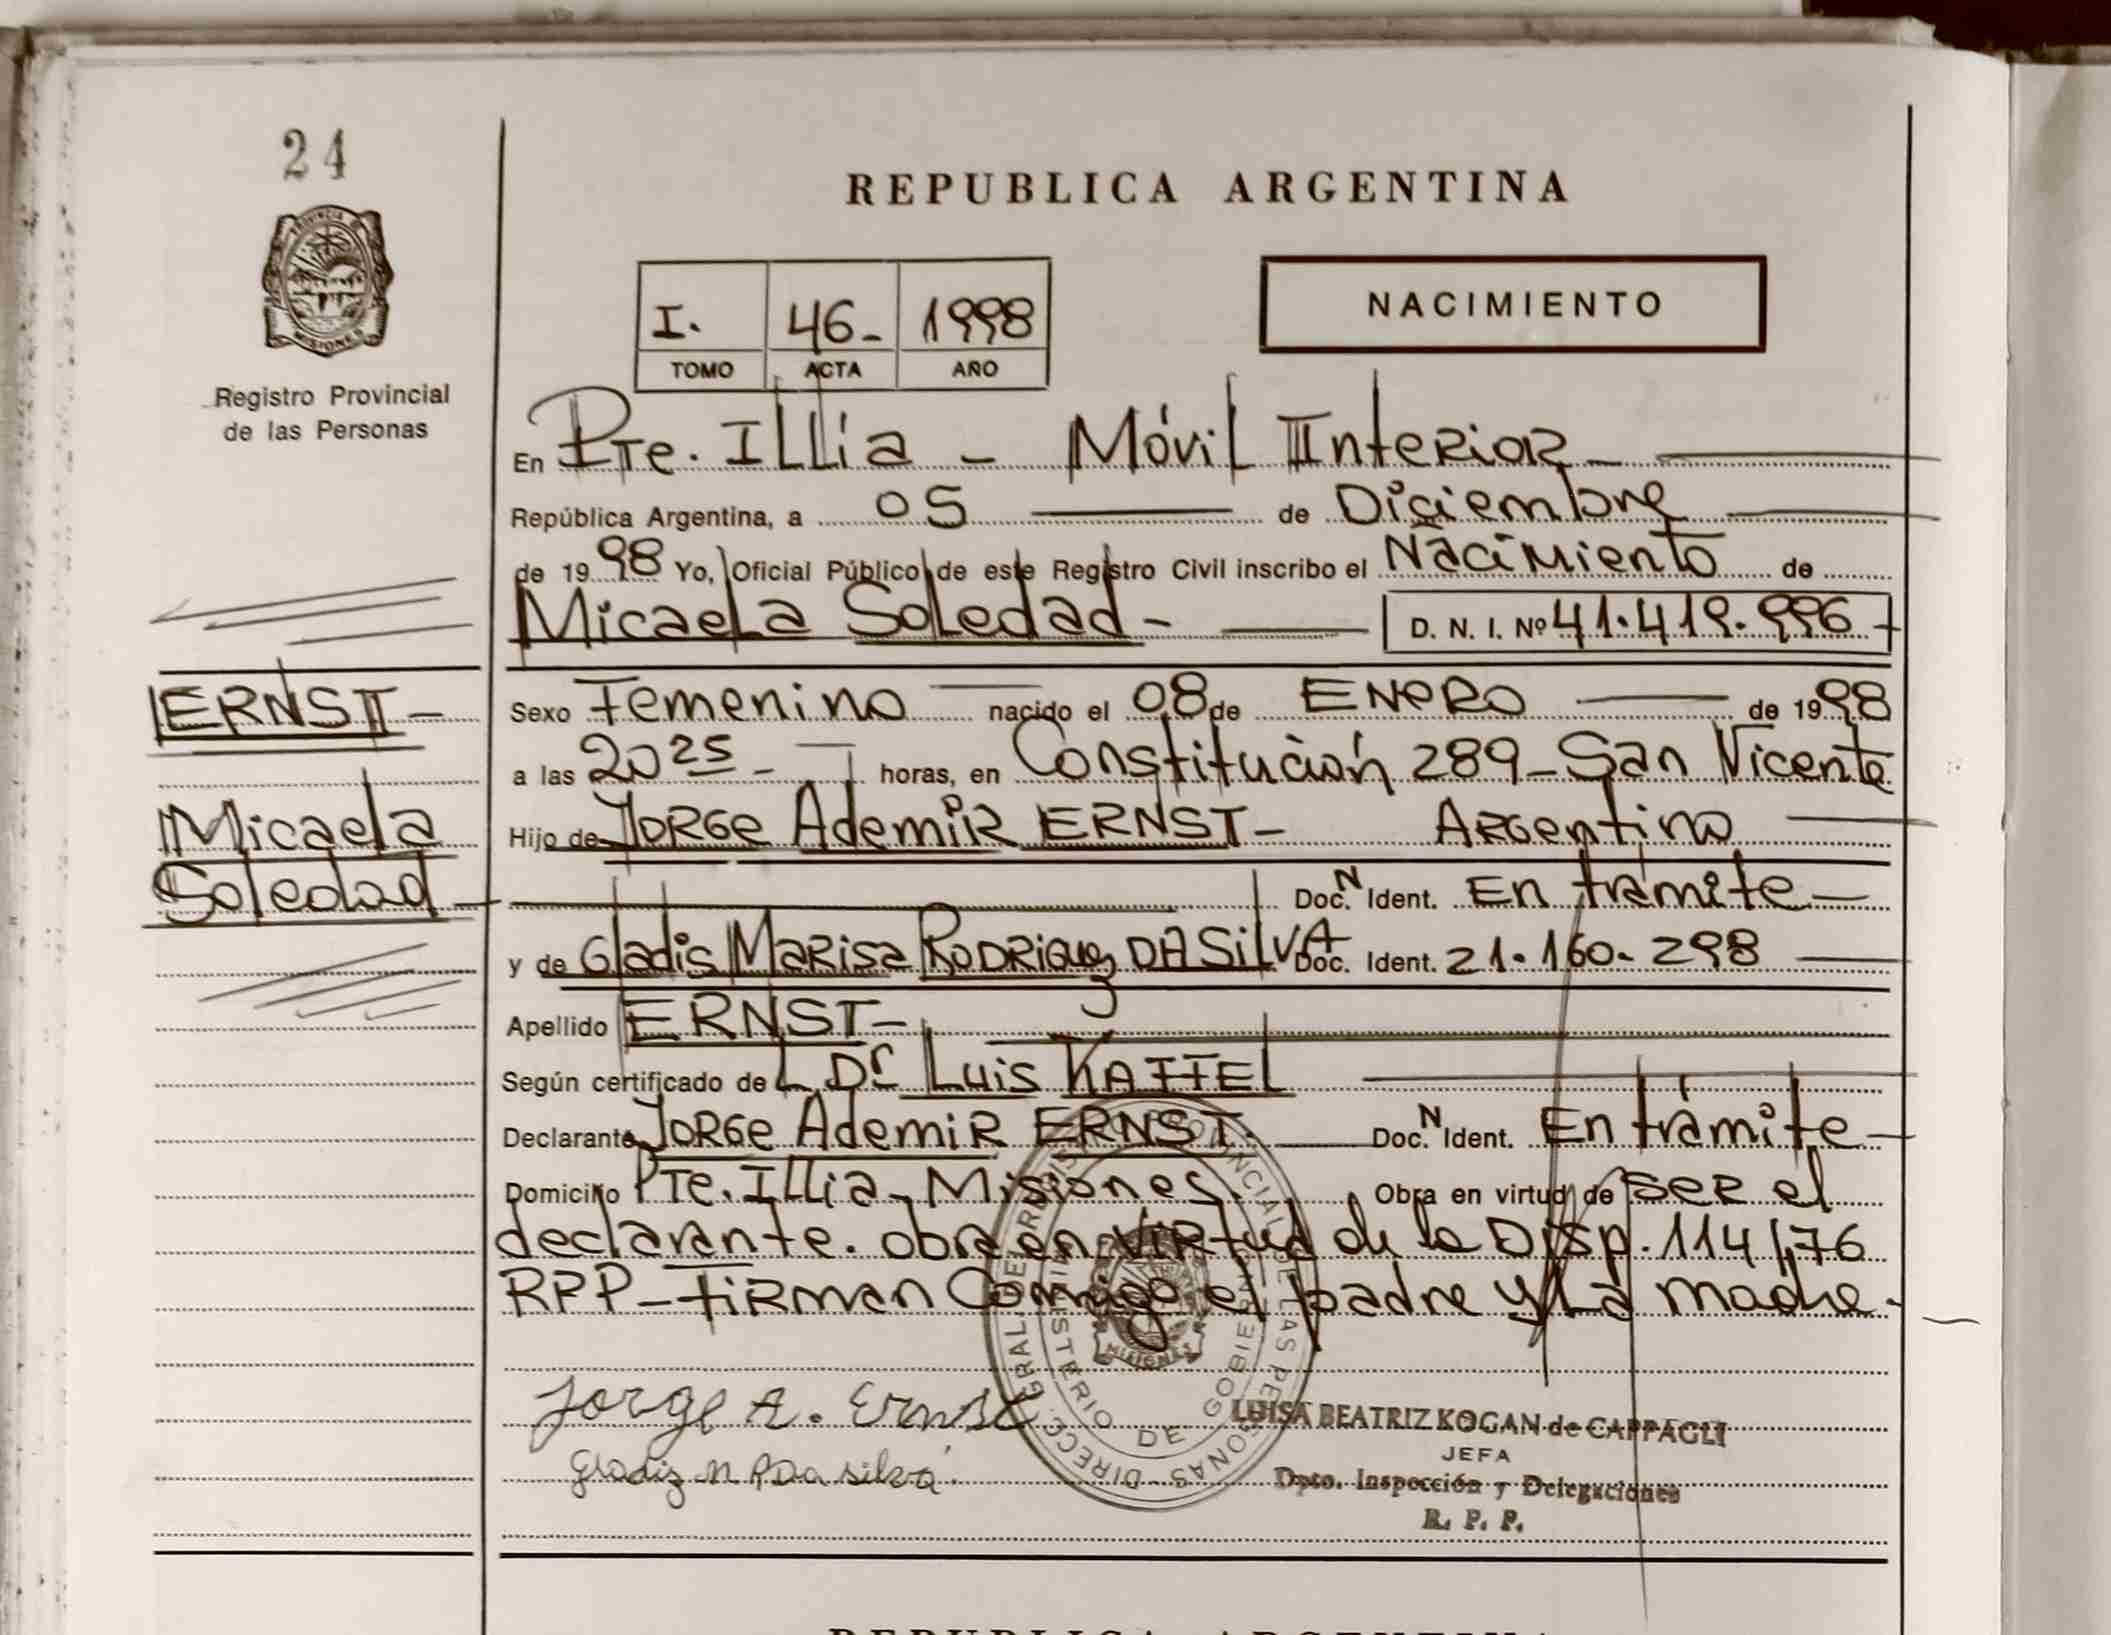 24
PROVINCIA DE
MISIONES
Registro Provincial
de las Personas
REPUBLICA ARGENTINA
I. 46- 1998
TOMO ACTA AÑO
NACIMIENTO
En Pte. ILLia - Móvil Interior
República Argentina, a 05 de Diciembre
de 1998 Yo, Oficial Público de este Registro Civil inscribo el Nacimiento de
Micaela Soledad- D. N. I. Nº 41.419.996
ERNST-
Sexo Femenino nacido el 08 de ENERO de 1998
a las 20 25 - horas, en Constitución 289-San Vicente
Micaela
Hijo de JORGe Ademir ERNST- Argentino
Soledad
Doc. N Ident. En trámite
y de Gladis Marisa Rodriguez DA SilVA Doc. Ident. 21.160.298
Apellido ERNST-
Según certificado de L Dr Luis
Declarante JORGe Ademir ERNST. Doc. N Ident. En trámite
Domicilio Pte. ILLia - Misiones. Obra en virtud de ser el
declarante. obra en virtud de la Disp. 114/76
RPP-firman Conmigo el padre y La madre.
Jorge A. Ernst
Gladiz M R Da silva
DIRECC. GRAL. PROVINCIAL DE LAS PERSONAS
MINISTERIO DE GOBIERNO
MISIONES
LUISA BEATRIZ KOGAN de CAPPAGLI
JEFA
Dpto. Inspección y Delegaciones
R. P. P.
REPUBLICA ARGENTINA